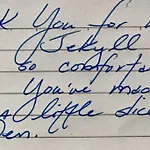 You for
Jekyll
so comforta
You've mad
little slic